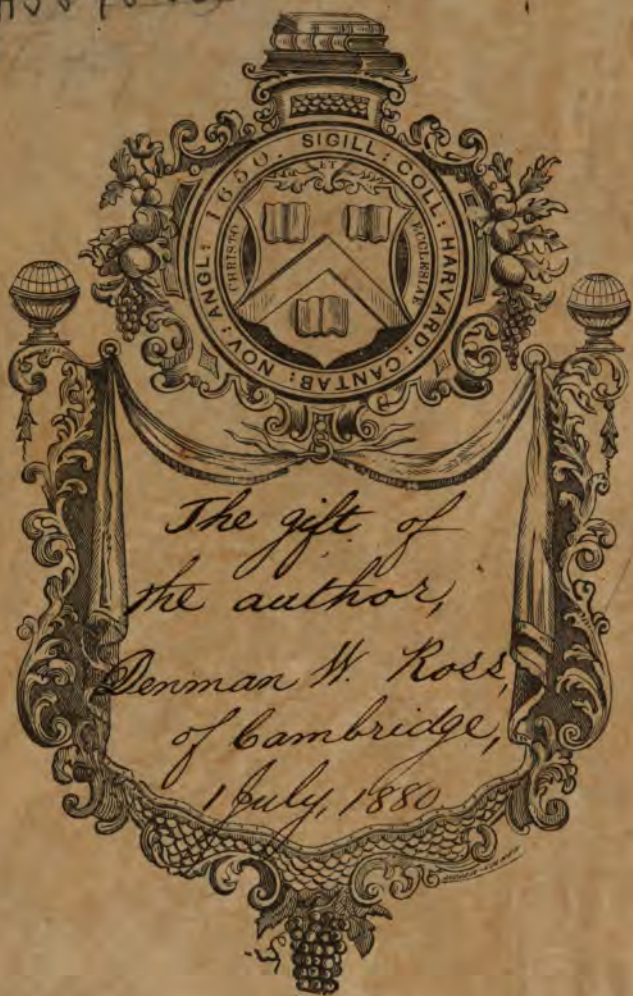 SIGILL: COLL: HARVARD: CANTAB: NOV: ANGL: 1650.
ET
CHRISTO
ECCLESIAE
The gift of
the author,
Denman W. Ross,
of Cambridge,
1 July, 1880.